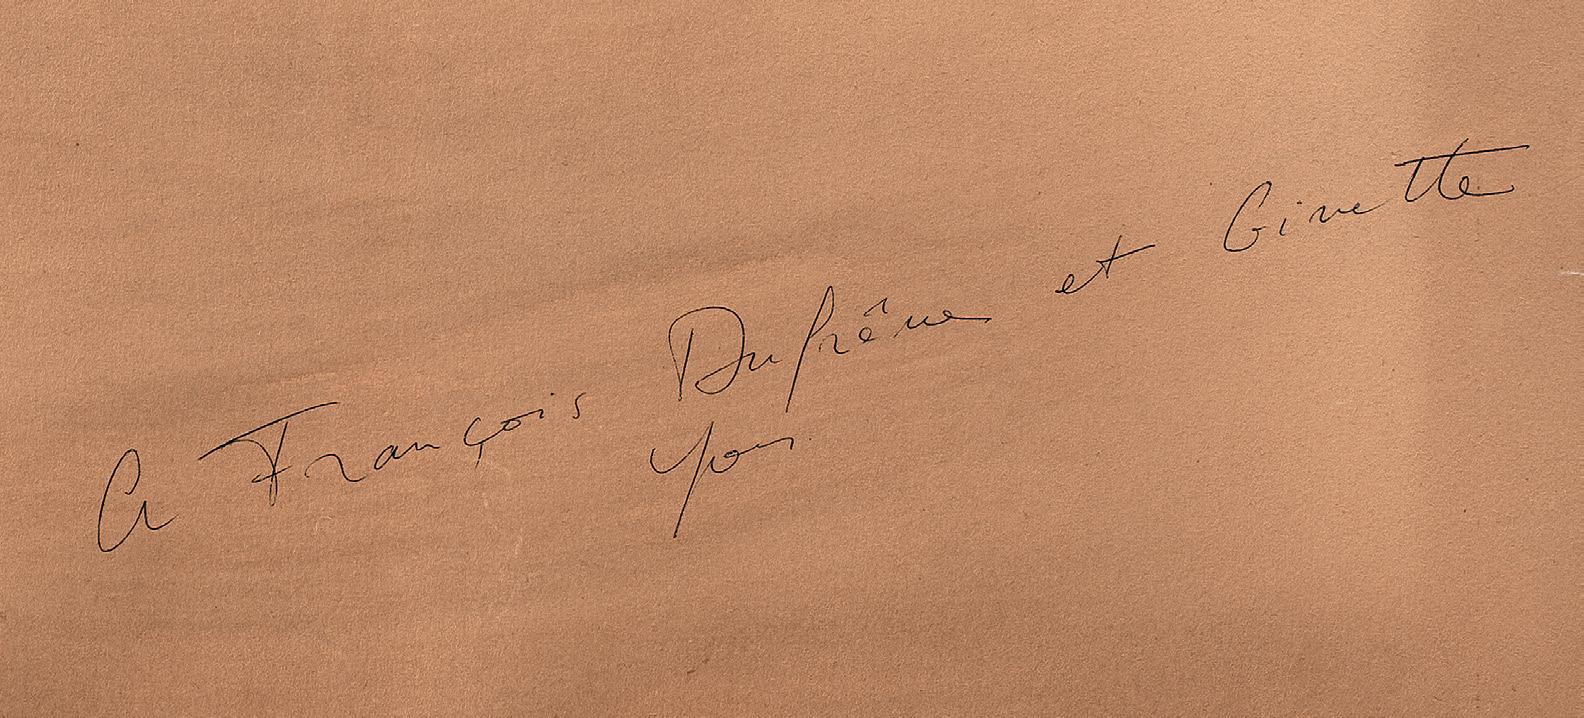 A François Dufrêne et Ginette